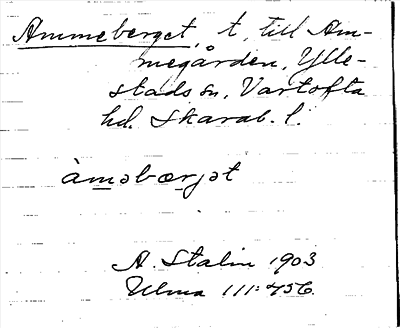 Ammeberget, t, till Am-
megården, Ylle-
stads sn, Vartofta
hd. Skarab. l.
àməbærjət
A. Stalin 1903
Ulma 111:456.